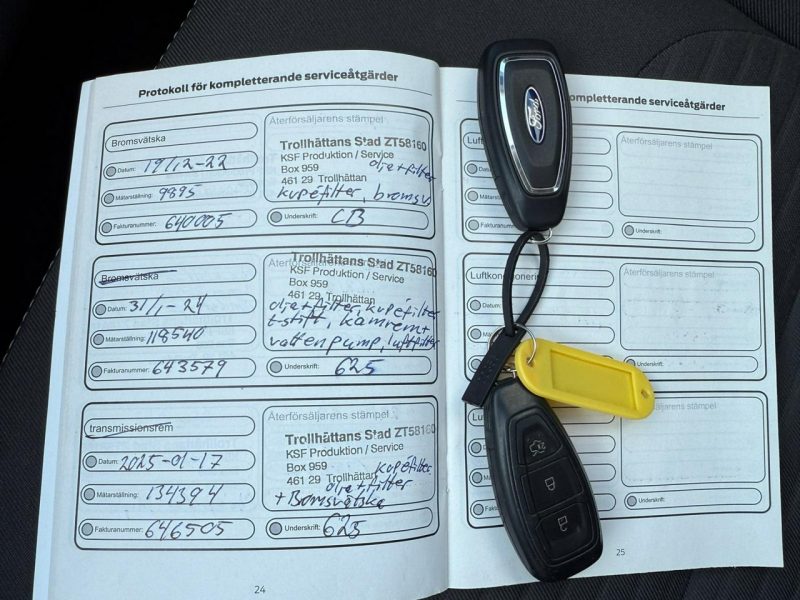 Protokoll för kompletterande serviceåtgärder
Bromsvätska
Datum: 19/12-22
Mätarställning: 9895
Fakturanummer: 640005
Återförsäljarens stämpel
Trollhättans Stad ZT58160
KSF Produktion / Service
Box 959 olja+filter
461 29 Trollhättan
kupéfilter, bromsv
Underskrift: CB
Bromsvätska
Datum: 31/1-24
Mätarställning: 118540
Fakturanummer: 643579
Återförsäljarens
Trollhättans Stad ZT58160
KSF Produktion / Service
Box 959
461 29 Trollhättan
olja+filter, kupéfilter
t-stift, kamrem+
vattenpump, luftfilter
Underskrift: 625
transmissionsrem
Datum: 2025-01-17
Mätarställning: 134394
Fakturanummer: 646505
Återförsäljarens stämpel
Trollhättans Stad ZT58160
KSF Produktion / Service
Box 959 kupéfilter
461 29 Trollhättan
olja+filter
+ Bromsvätska
Underskrift: 625
24
Ford
kompletterande serviceåtgärder
Datum:
Mätarställning:
Fakturanummer:
Återförsäljarens stämpel
Underskrift:
Datum:
Mätarställning:
Återförsäljarens stämpel
Återförsäljarens stämpel
Underskrift:
25